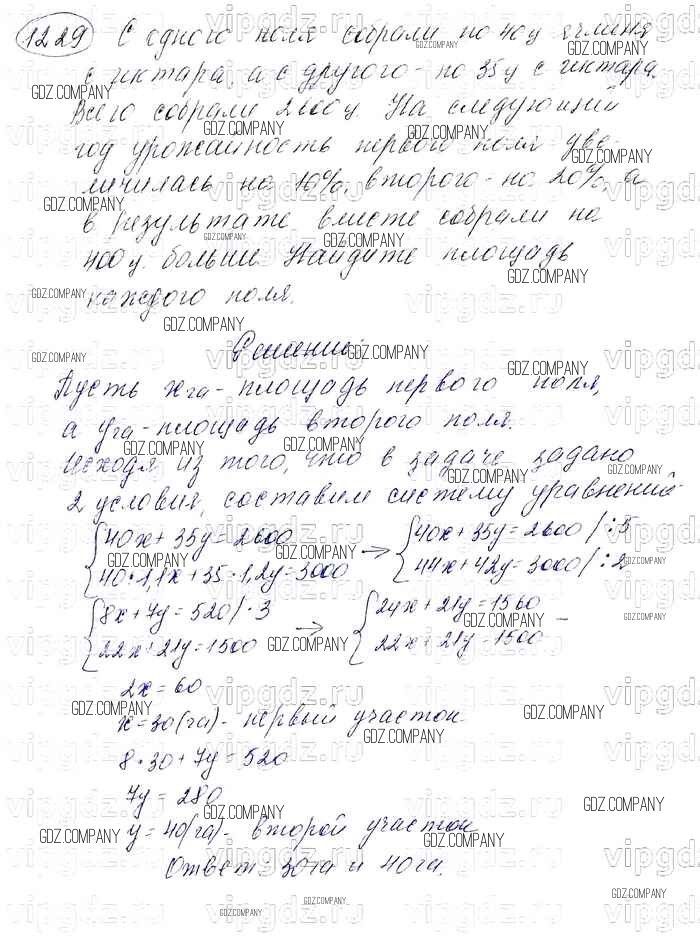 1229 С одного поля собрали по 40 ц ячменя
с гектара, а с другого - по 35 ц с гектара.
Всего собрали 2600 ц. На следующий
год урожайность первого поля уве-
личилась на 10%, второго - на 20%, а
в результате вместе собрали на
400 ц. больше. Найдите площадь
каждого поля.
Решение:
Пусть x га - площадь первого поля,
а y га - площадь второго поля.
Исходя из того, что в задаче задано
2 условия, составим систему уравнений:
{40x + 35y = 2600 → {40x + 35y = 2600 | :5
{40·1,1x + 35·1,2y = 3000 {44x + 42y = 3000 | :2
{8x + 7y = 520 | ·3 → {24x + 21y = 1560 –
{22x + 21y = 1500 {22x + 21y = 1500
2x = 60
x = 30 (га) - первый участок
8·30 + 7y = 520
7y = 280
y = 40 (га) - второй участок
Ответ: 30 га и 40 га.